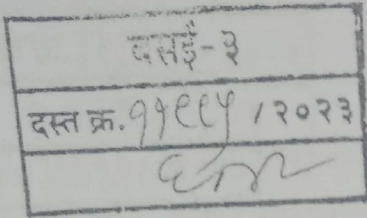 वसई-३
दस्त क्र. १५९९५ / २०२३